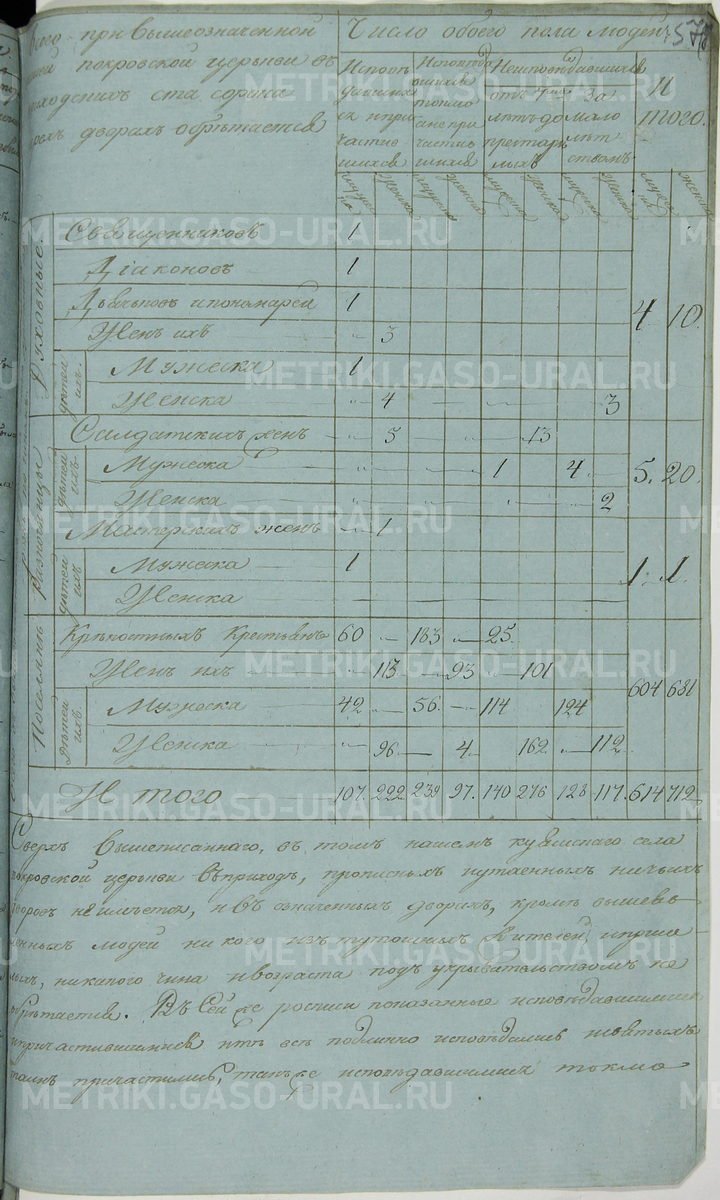 при вышеозначенной
покровской церькви въ
приходскихъ ста сорока
дворахъ обрѣтается
Число обоего пола людей
57
Исповѣ
давших
ся и при
частив
шихся
Исповѣда
вшихся
токмо
а не при
частив
шихся
Неисповѣдавшихся
отъ 7 ми
лѣтъ до
престарѣ
лыхъ
За
мало
лѣт
ствомъ
И
того.
мужеска женска мужеска женска мужеска женска мужеска женска мужеска женска
Духовные.
Священниковъ 1
Діаконовъ 1
Дьячьковъ и пономарей 1 4 10.
Женъ ихъ 3
дѣтей ихъ
Мужеска 1
Женска 4 3
Разночинцы
Салдатскихъ женъ 3 13
дѣтей ихъ
Мужеска 1 4 5. 20.
Женска 2
Мастерскихъ женъ 1
дѣтей ихъ
Мужеска 1 1. 1.
Женска
Поселянъ
Крѣпостныхъ Крестьянъ 60 183 25.
Женъ ихъ 113 93 101
604 681
дѣтей ихъ
Мужеска 42 56. 114 124
Женска 96 4. 162. 112
И того 107. 222 239 97. 140 276 128 117. 614 712
Сверхъ вышеписаннаго, въ томъ нашемъ куяшскаго села
покровской церькви въ приходѣ, прописныхъ и утаенныхъ ничьихъ
дворовъ не имѣется, и въ означенныхъ дворахъ, кромѣ вышевъ
ленныхъ людей ни кого изъ тутошныхъ жителей и прише
лыхъ, никакого чина и возраста подъ укрывательствомъ не
обрѣтается. Въ Сей же росписи показанные исповѣдавшимися
и причастившимися всѣ подлинно исповѣдались и святыхъ
таинъ причастились, также исповѣдавшимися токмо
METRIKI.GASO-URAL.RU